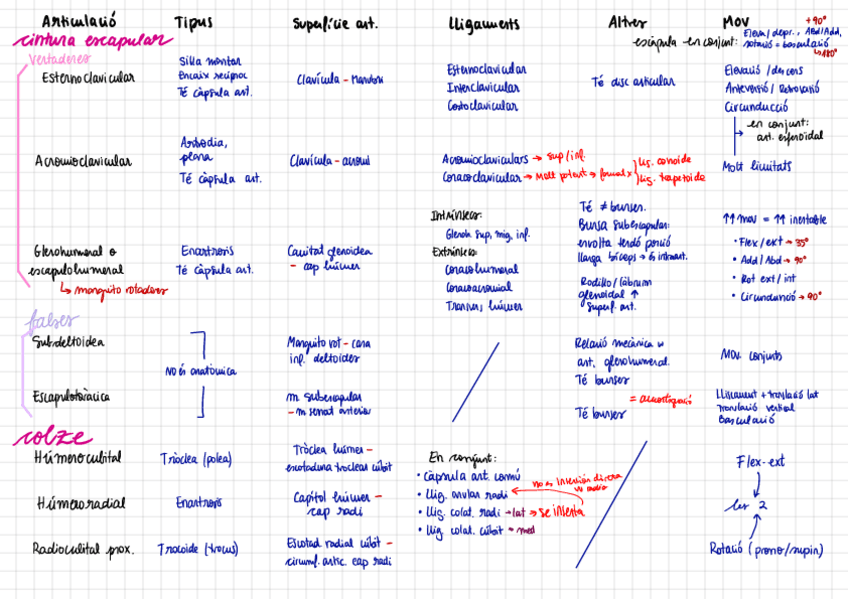 Articulació Tipus Superfície art. Lligaments Altres Mov
+90°
escápula en conjunt: Eleva/depr., Abd/Add,
rotació = basculació
↳180°
cintura escapular
Vertaderes
Esternoclavicular
Silla montar
Encaix recíproc
Té càpsula art.
Clavícula - Manubri
Esternoclavicular
Interclavicular
Costoclavicular
Té disc articular
Elevació / descens
Anteversió / Retroversió
Circunducció
→ en conjunt:
art. esferoidal
Acromioclavicular
Artrodia,
plana
Té càpsula art.
Clavícula - acromi
Acromioclaviculars → sup/inf.
Coracoclavicular → Molt potent → formal x
Lig. conoide
Lig. trapezoide
Molt limitats
Glenohumeral o
escapulohumeral
↳ manguito rotadores
Enartrosis
Té càpsula art.
Cavitat glenoidea
- cap húmer
Intrínsecs:
Glenoh sup, mig, inf.
Extrínsecs:
Coracohumeral
Coracoacromial
Transvers húmer
Té ≠ burses.
Bursa subescapular:
envolta tendó porció
llarga bíceps → és intraart.
Rodillo / làbrum
glenoidal ↑
superf. art.
↑↑ mov = ↑↑ inestable
• Flex/ext → 35°
• Add/Abd → 90°
• Rot ext / int
• Circunducció → 90°
falses
Subdeltoidea
No és anatòmica
Manguito rot - cara
inf. deltoides
Relació mecànica w
art. glenohumeral.
Té burses
Mov. conjunts
Escapulotoràcica
m subescapular
- m serrat anterior
= amortiguació
Té burses
Lliscament + translació lat
Translació vertical
Basculació
colze
Húmerocubital
Tròclea (polea)
Tròclea húmer -
escotadura troclear cúbit
En conjunt:
• Càpsula art. comú
• Llig. anular radi
• Llig. colat. radi → lat → se inserta
• Llig. colat. cúbit → med
no és inserción directa
Flex-ext
Húmeroradial
Enartrosis
Capítol húmer -
cap radi
les 2
Radiocubital prox.
Trocoide (trocus)
Escotad radial cúbit -
circumf. artic. cap radi
Rotació (prono/supin)